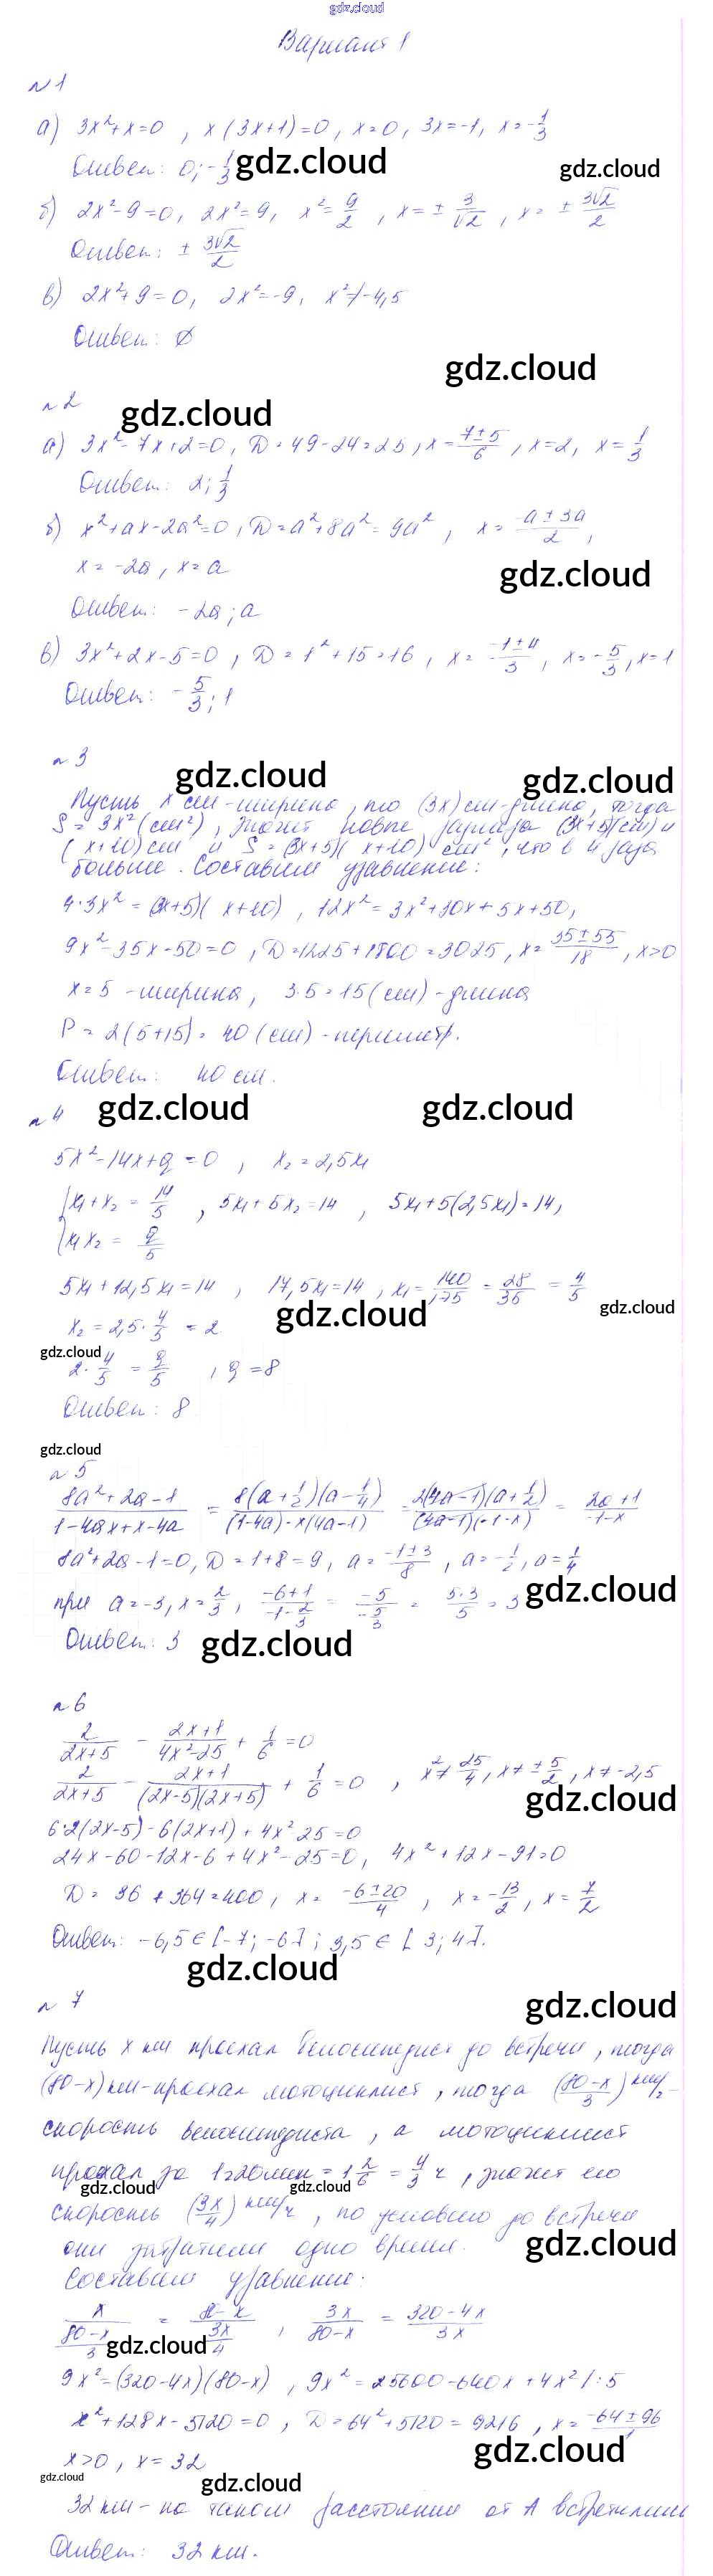 gdz.cloud
Вариант 1
№1
а) 3x²+x=0, x(3x+1)=0, x=0, 3x=-1, x=-1/3
Ответ: 0; -1/3 gdz.cloud gdz.cloud
б) 2x²-9=0, 2x²=9, x²=9/2, x=±3/√2, x=±3√2/2
Ответ: ±3√2/2
в) 2x²+9=0, 2x²=-9, x²≠-4,5
Ответ: ∅
gdz.cloud
№2 gdz.cloud
а) 3x²-7x+2=0, D=49-24=25, x=(7±5)/6, x=2, x=1/3
Ответ: 2; 1/3
б) x²+ax-2a²=0, D=a²+8a²=9a², x=(-a±3a)/2,
x=-2a, x=a gdz.cloud
Ответ: -2a; a
в) 3x²+2x-5=0, D=1²+15=16, x=(-1±4)/3, x=-5/3, x=1
Ответ: -5/3; 1
№3
gdz.cloud gdz.cloud
Пусть x см-ширина, то (3x)см-длина, тогда
S=3x²(см²), значит новые размеры (3x+5)(см) и
(x+10)см и S=(3x+5)(x+10) см², что в 4 раза
больше. Составим уравнение:
4·3x²=(3x+5)(x+10), 12x²=3x²+30x+5x+50,
9x²-35x-50=0, D=1225+1800=3025, x=(35±55)/18, x>0
x=5 -ширина, 3·5=15(см)-длина
P=2(5+15)=40(см)-периметр.
Ответ: 40 см.
№4 gdz.cloud gdz.cloud
5x²-14x+q=0, x₂=2,5x₁
{x₁+x₂=14/5, 5x₁+5x₂=14, 5x₁+5(2,5x₁)=14,
{x₁x₂=q/5
5x₁+12,5x₁=14, 17,5x₁=14, x₁=140/175=28/35=4/5
gdz.cloud gdz.cloud
x₂=2,5·4/5=2
gdz.cloud
2·4/5=q/5, q=8
Ответ: 8
gdz.cloud
№5
(8a²+2a-1)/(1-4ax+x-4a)=8(a+1/2)(a-1/4)/((1-4a)-x(4a-1))=2(4a-1)(a+1/2)/((4a-1)(-1-x))=(2a+1)/(-1-x)
8a²+2a-1=0, D=1+8=9, a=(-1±3)/8, a=-1/2, a=1/4
при a=-3, x=2/3, (-6+1)/(-1-2/3)=-5/(-5/3)=5·3/5=3 gdz.cloud
Ответ: 3 gdz.cloud
№6
2/(2x+5)-(2x+1)/(4x²-25)+1/6=0
2/(2x+5)-(2x+1)/((2x-5)(2x+5))+1/6=0, x²≠25/4, x≠±5/2, x≠-2,5
gdz.cloud
6·2(2x-5)-6(2x+1)+4x²-25=0
24x-60-12x-6+4x²-25=0, 4x²+12x-91=0
D=36+364=400, x=(-6±20)/4, x=-13/2, x=7/2
Ответ: -6,5∈[-7;-6]; 3,5∈[3;4].
gdz.cloud
№7 gdz.cloud
Пусть x км проехал велосипедист до встречи, тогда
(80-x)км-проехал мотоциклист, тогда ((80-x)/3) км/ч-
скорость велосипедиста, а мотоциклист
проехал за 1ч20мин=1 2/6=4/3 ч, значит его
gdz.cloud gdz.cloud
скорость (3x/4) км/ч, по условию до встречи
они затратили одно время. gdz.cloud
Составим уравнение:
x/((80-x)/3)=(80-x)/(3x/4), 3x/(80-x)=(320-4x)/3x
gdz.cloud
9x²=(320-4x)(80-x), 9x²=25600-640x+4x² /:5
x²+128x-5120=0, D=64²+5120=9216, x=(-64±96)/1
gdz.cloud
x>0, x=32
gdz.cloud gdz.cloud
32 км-на таком расстоянии от А встретились
Ответ: 32 км.